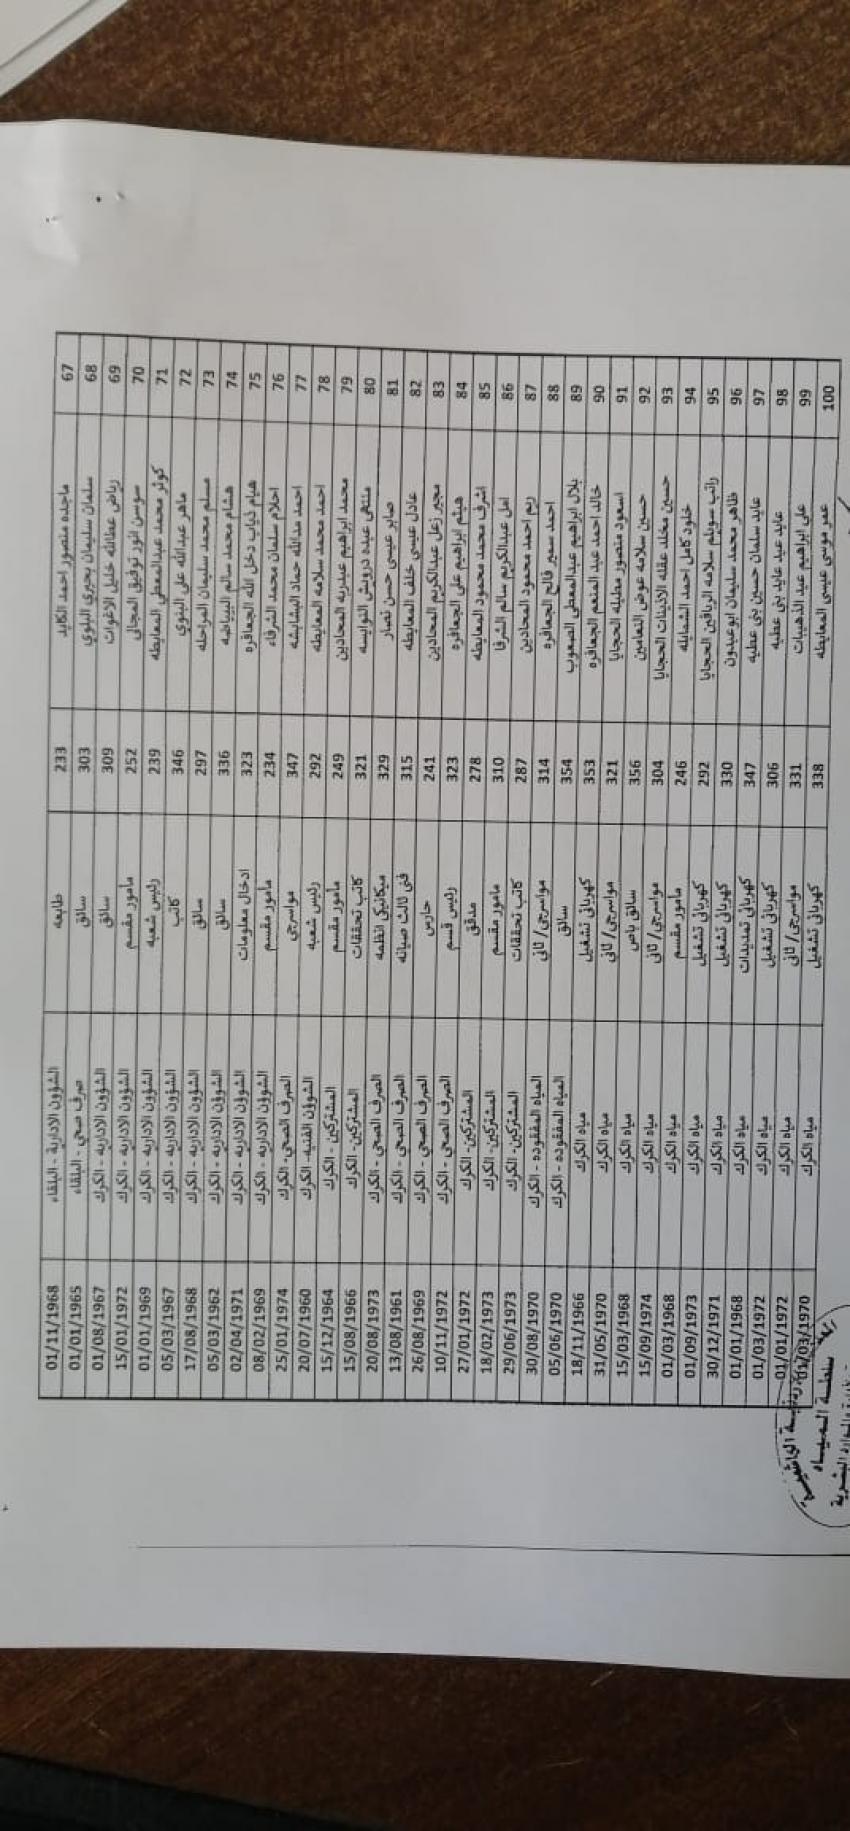 67 ماجده منصور احمد الكايد 233 طابعه الشؤون الادارية - البلقاء 01/11/1968
68 سلمان سليمان بحيري البلوي 303 سائق صرف صحي - البلقاء 01/01/1965
69 رياض عطاالله خليل الاغوات 309 سائق الشؤون الادارية - الكرك 01/08/1967
70 سوسن انور توفيق المجالي 252 مأمور مقسم الشؤون الادارية - الكرك 15/01/1972
71 كوثر محمد عبدالمعطي المعايطه 239 رئيس شعبه الشؤون الادارية - الكرك 01/01/1969
72 ماهر عبدالله علي البلوي 346 كاتب الشؤون الادارية - الكرك 05/03/1967
73 مسلم محمد سليمان المراحله 297 سائق الشؤون الادارية - الكرك 17/08/1968
74 هشام محمد سالم البيايضه 336 سائق الشؤون الادارية - الكرك 05/03/1962
75 هيام ذياب دخل الله الجعافره 323 ادخال معلومات الشؤون الادارية - الكرك 02/04/1971
76 احلام سلمان محمد الشرفاء 234 مأمور مقسم الشؤون الادارية - الكرك 08/02/1969
77 احمد مدالله حماد البشابشه 347 مواسرجي الصرف الصحي - الكرك 25/01/1974
78 احمد محمد سلامه المعايطه 292 رئيس شعبه الشوؤن الفنيه - الكرك 20/07/1960
79 محمد ابراهيم عبدربه المحادين 249 مأمور مقسم المشتركين - الكرك 15/12/1964
80 منتهى عبده درويش النوايسه 321 كاتب تحققات المشتركين - الكرك 15/08/1966
81 صابر عيسى حسن نصار 329 ميكانيكي انظمه الصرف الصحي - الكرك 20/08/1973
82 عادل عيسى خلف المعايطه 315 فني ثالث صيانه الصرف الصحي - الكرك 13/08/1961
83 مجبر زعل عبدالكريم المحادين 241 حارس الصرف الصحي - الكرك 26/08/1969
84 هيثم ابراهيم علي الجعافره 323 رئيس قسم الصرف الصحي - الكرك 10/11/1972
85 اشرف محمد محمود المعايطه 278 مدقق المشتركين - الكرك 27/01/1972
86 امل عبدالكريم سالم الشرفا 310 مامور مقسم المشتركين - الكرك 18/02/1973
87 ريم احمد محمود المحادين 287 كاتب تحققات المشتركين - الكرك 29/06/1973
88 احمد سمير فالح الجعافره 314 مواسرجي/ ثاني المياه المفقوده - الكرك 30/08/1970
89 بلال ابراهيم عبدالمعطي الصعوب 354 سائق المياه المفقوده - الكرك 05/06/1970
90 خالد احمد عبد المنعم الجعافره 353 كهربائي تشغيل مياه الكرك 18/11/1966
91 اسعود منصور مطيله الحجايا 321 مواسرجي/ ثاني مياه الكرك 31/05/1970
92 حسين سلامه عوض النعامين 356 سائق باص مياه الكرك 15/03/1968
93 حسين مخلد عقله الاذينات الحجايا 304 مواسرجي/ ثاني مياه الكرك 15/09/1974
94 خلود كامل احمد الشمايله 246 مأمور مقسم مياه الكرك 01/03/1968
95 راتب سويلم سلامه الرياقين الحجايا 292 كهربائي تشغيل مياه الكرك 01/09/1973
96 ظاهر محمد سليمان ابوعبدون 330 كهربائي تشغيل مياه الكرك 30/12/1971
97 عايد سلمان حسين بني عطيه 347 كهربائي تمديدات مياه الكرك 01/01/1968
98 عايد عيد عايد بني عطيه 306 كهربائي تشغيل مياه الكرك 01/03/1972
99 علي ابراهيم عيد الذهيبات 331 مواسرجي/ ثاني مياه الكرك 01/01/1972
100 عمر موسى عيسى المعايطه 338 كهربائي تشغيل مياه الكرك 01/03/1970
سلطة المياه